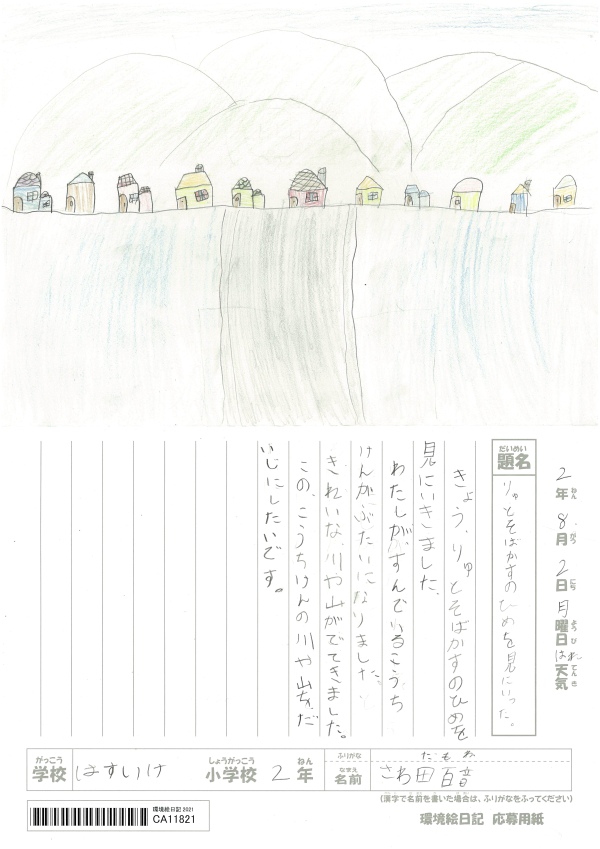 2年 8月 2日 月曜日 はれ 天気
ねん がつ にち ようび てんき
だいめい
題名
りゅうとそばかすのひめを見にいった。
きょう、りゅうとそばかすのひめを
見にいきました。
わたしが、すんでいるこうち
けんがぶたいになりました。
きれいな、川や山がでてきました。
この、こうちけんの川や山を、だ
いじにしたいです。
がっこう
学校
はすいけ
しょうがっこう
小学校
2
ねん
年
ふりがな
なまえ
名前
た もね
さわ田 百音
(漢字で名前を書いた場合は、ふりがなをふってください)
環境絵日記2021
CA11821
環境絵日記 応募用紙